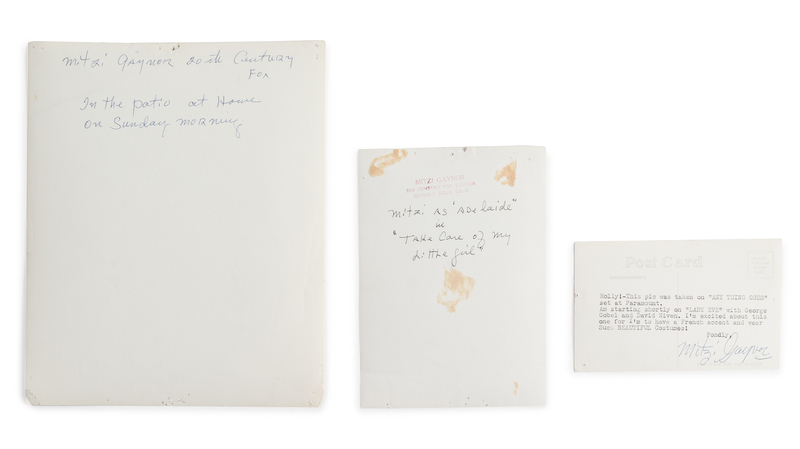 Mitzi Gaynor 20th Century
Fox
In the patio at Home
on Sunday morning
MITZI GAYNOR
Mitzi as "Adelaide"
in
"Take Care of my
Little girl"
Post Card
Molly:-This pic was taken on "ANY THING GOES"
set at Paramount.
Am starting shortly on "LADY EVE" with George
Gobel and David Niven. I'm excited about this
one for I'm to have a French accent and wear
Such BEAUTIFUL Costumes!
Fondly,
Mitzi Gaynor